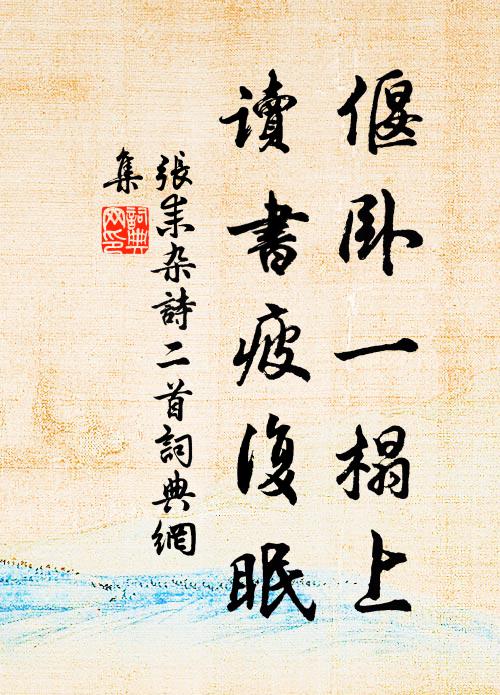 偃臥一榻上
讀書疲復眠
張耒杂詩二首詞典網
集
詞典
网印